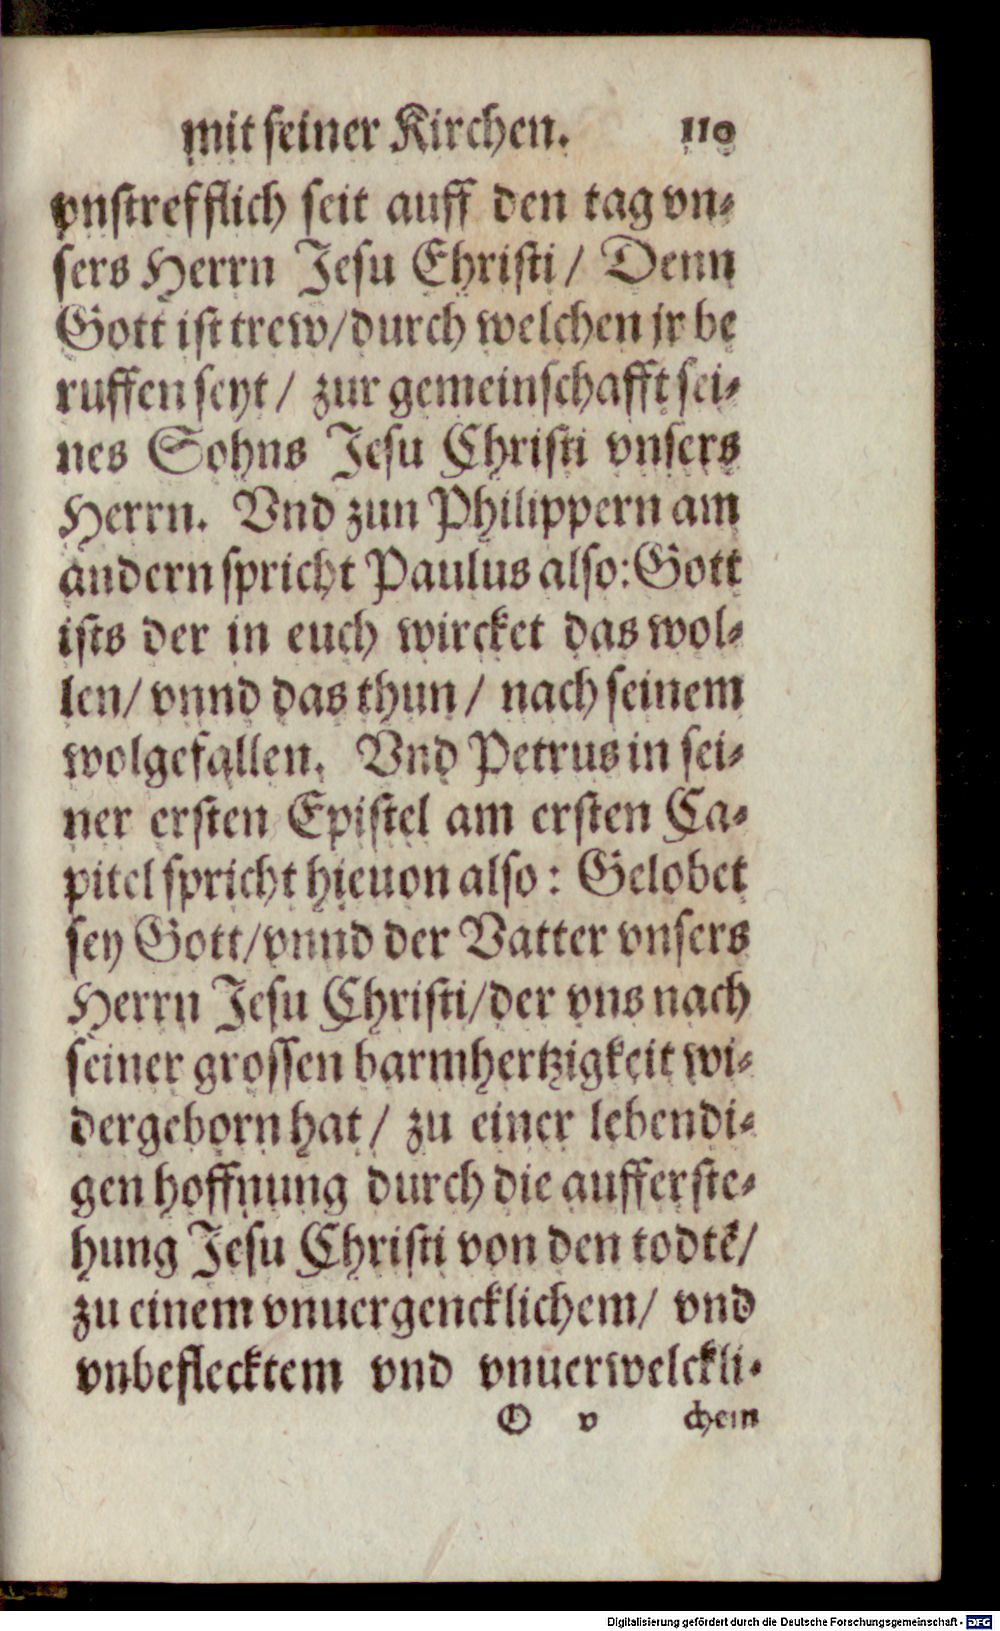 mit seiner Kirchen. 110
vnstrefflich seit auff den tag vn⸗
sers Herrn Jesu Christi / Denn
Gott ist trew/durch welchen jr be
ruffen seyt / zur gemeinschafft sei⸗
nes Sohns Jesu Christi vnsers
Herrn. Vnd zun Philippern am
andern spricht Paulus also: Gott
ists der in euch wircket das wol⸗
len/ vnnd das thun / nach seinem
wolgefallen. Vnd Petrus in sei⸗
ner ersten Epistel am ersten Ca⸗
pitel spricht hieuon also: Gelobet
sey Gott/vnnd der Vatter vnsers
Herrn Jesu Christi/der vns nach
seiner grossen barmhertzigkeit wi⸗
dergeborn hat / zu einer lebendi⸗
gen hoffnung durch die aufferste⸗
hung Jesu Christi von den todtē/
zu einem vnuergencklichem/ vnd
vnbeflecktem vnd vnuerwelckli⸗
O v chem
Digitalisierung gefördert durch die Deutsche Forschungsgemeinschaft - DFG